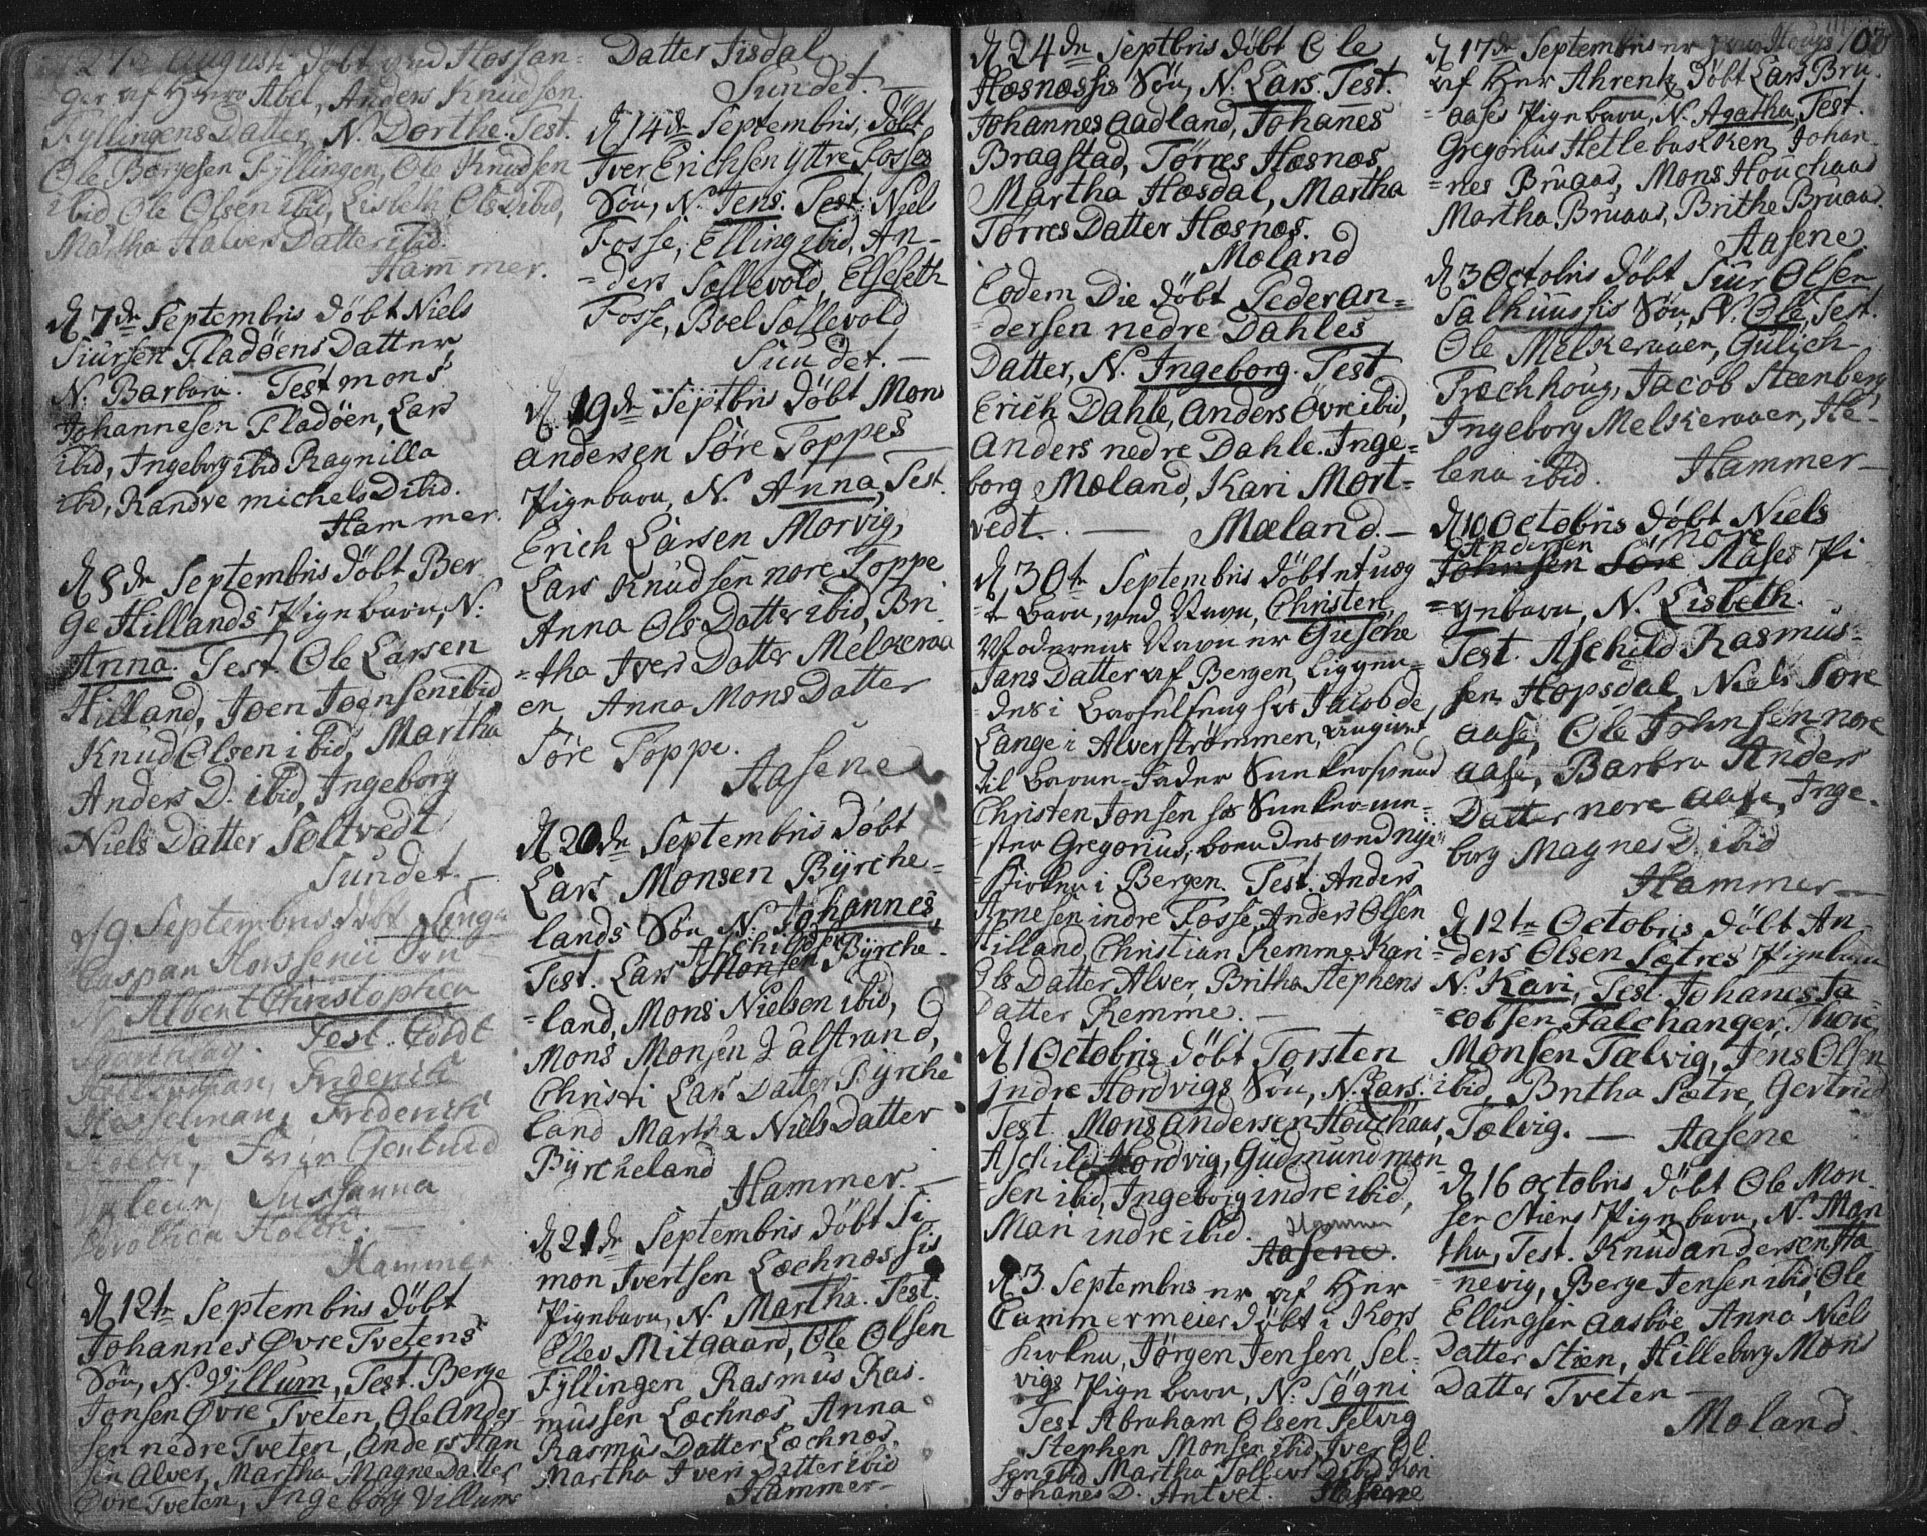 27de Augusti døbt ved Hossan=
ger af Herr Abel, Anders Knudsen
Fyllingens Datter, N. Dorthe. Test.
Ole Børgesen Fyllingen, Ole Knudsen
ibid, Ole Olsen ibid, Lisbeth Ols D. ibid,
Martha Halvers Datter ibid.
Hammer.
d. 7de Septembris døbt Niels
Siursen Fladøens Datter,
N. Barbara. Test mons
Johannesen Fladøen, Lars
ibid, Ingeborg ibid Ragnilla
ibid, Randve michels D ibid.
Hammer.
d. 8de Septembris døbt Ber
ge Hillands Pigebarn, N.
Anna. Test. Ole Larsen
Hilland, Joen Joensen ibid
Knud Olsen ibid, Martha
Anders D. ibid, Ingeborg
Niels Datter Soltvedt
Sundet.
d. 9. Septembris døbt
Caspar
N. Albert Christopher
Test.
Friderich
Hasselman, Friderich
Holck, Gertrud
Susanna
Dorothea Holck.
Hammer
d. 12te Septembris døbt
Johannes Øvre Tvetens
Søn, N. Villum, Test. Berge
Jonsen Øvre Tveten, Ole Ander
sen nedre Tveten, Anders Han
sen Alver, Martha Magne Datter
Øvre Tveten, Ingeborg Villums
Datter Iisdal
Sundet.
d. 14de Septembris, døbt
Iver Erichsen Yttre Fosses
Søn, N. Jens. Test. Niels
Fosse, Elling ibid, An=
=ders Sællevold, Elsebeth
Fosse, Boel Sællevold
Sundet. —
d. 19de Septbris døbt Mons
Andersen Søre Toppes
Pigebarn, N. Anna, Test.
Erich Larsen Morvig,
Lars Knudsen nore Toppe
Anna Ols Datter ibid, Bri
=tha Iver Datter Melkeraa
en Anna Mons Datter
Søre Toppe.
Aasene
d. 20de Septembris døbt
Lars Monsen Byrche=
lands Søn N. Johannes,
Test. Lars Monsen Aschildsen Byrche=
=land, Mons Nielsen ibid,
Mons Monsen Dalstrand,
Christi Lars Datter Byrche
land Martha Niels Datter
Byrcheland
Hammer. —
d. 21de Septembris døbt Si
mon Ivertsen Lechnæssis
Pigebarn, N. Martha. Test.
Ellev Mitgaard, Ole Olsen
Fyllingen Rasmus Ras.
mussen Lechnæs, Anna
Rasmus Datter Lechnæs,
Martha Ivers Datter ibid
Hammer—
d. 24de Septbris døbt Ole
Hæsnæssis Søn, N. Lars. Test.
Johannes Aadland, Johanes
Bragstad, Tørres Hæsnæs,
Martha Hæsdal, Martha
Tørres Datter Hæsnæs.
Mæland
Eodem Die døbt Peder An=
=dersen nedre Dahles
Datter, N. Ingeborg. Test
Erich Dahle, Anders Øvre ibid,
Anders nedre Dahle. Inge=
borg Mæland, Kari Mort=
vedt. — Mæland. —
d. 30te Septembris døbt et uæg
=te Barn, ved Navn, Christen,
Moderens Navn er Giesche
Jans Datter af Bergen, liggen=
=des i Barselseng hos Jacob de
Lange i Alverstrømmen, angivet
til Barne=Fader Sunkersvend
Christen Jonsen hos Sunker=me=
=ster Gregorius, boendes ved nye
=Kirken i Bergen. Test. Anders
Arnesen indre Fosse, Anders Olsen
Hilland, Christian Remme, Kari
Ols Datter Alver, Britha Stephens
Datter Remme. —
d. 1 Octobris døbt Torsten
indre Hordvigs Søn, N. Lars.
Test. Mons Andersen Houchaas,
Aschild Hordvig, Gudmund mon
=sen ibid, Ingeborg indre ibid,
Mari indre ibid. Hammer
Aasene.
d. 3 Septembris er af Herr
Cammermeier døbt i Kors
kirken, Jørgen Jensen Sel=
vigs Pigebarn, N. Søgni
Test Abraham Olsen Selvig
Stephen Monsen ibid, Iver Ol
sen ibid Martha Tollevs D ibid Kari
Johanes D. Antvet. Aasene
103
d. 17de Septembris er
af Herr Ahrentz, døbt Lars Bru=
aases Pigebarn, N. Agatha, Test.
Gregorius Hetlebakken, Johan=
=nes Bruaas, Mons Houchaas
Martha Bruaas, Brithe Bruaas.
Aasene.
d. 3 Octobris døbt Siur Olsen
Salhuussis Søn, N. Ole, Test.
Ole Melkeraaen, Gulich
Træchhoug, Jacob Steenberg,
Ingeborg Melkeraaen, He=
lena ibid. Hammer—
d. 10 Octobris døbt Niels
Johnsen Andersen Søre nore Aases Pi
=gebarn, N. Lisbeth.
Test. Aschild Rasmus=
sen Hopsdal, Niels Søre
Aase, Ole Johnsen nore
Aase, Barbra Anders
Datter nore Aase, Inge=
borg Magnes D. ibid
Hammer—
d. 12te Octobris døbt An=
=ders Olsen Sætres Pigebarn
N. Kari, Test. Johanes Ja=
=cobsen Falchanger, Thore
Monsen Tælvig, Jens Olsen
ibid, Britha Sætre, Gertrud
Tælvig. — Aasene
d. 16 octobris døbt Ole Mon=
sen Stiens Pigebarn, N. Mar
tha, Test. Knud Andersen Ha=
=nevig, Berge Jensen ibid, Ole
Ellingsen Aasbøe Anna Niels
Datter Stien, Hilleborg Mons
Datter Tveten
Mæland.